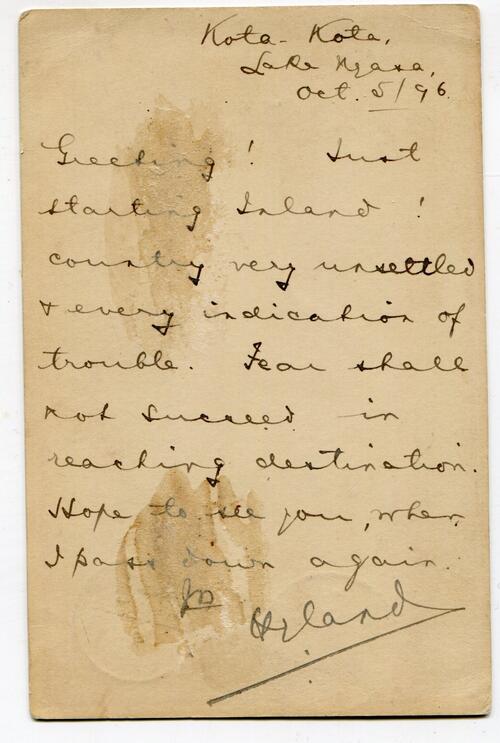 Kota-Kota,
Lake Nyasa,
Oct. 5/96.
Greeting! Just
starting Inland!
country very unsettled
& every indication of
trouble. Fear shall
not succeed in
reaching destination.
Hope to see you, when
I pass down again.
Hyland